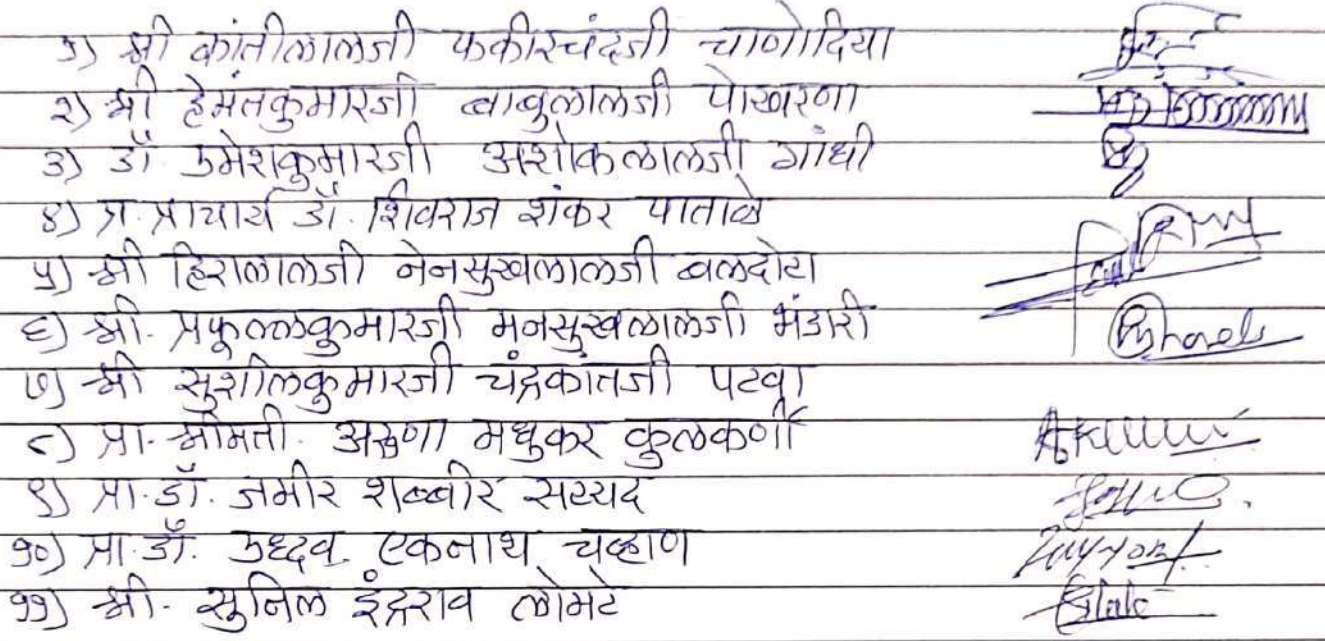 १) श्री कांतीलालजी फकीरचंदजी चाणोदिया
२) श्री हेमंतकुमारजी बाबुलालजी पोखरणा
३) डॉ. उमेशकुमारजी अशोकलालजी गांधी
४) प्र. प्राचार्य डॉ. शिवराज शंकर पाताळे
५) श्री हिरालालजी नेनसुखलालजी बलदोटा
६) श्री. प्रफूल्लकुमारजी मनसुखलालजी भंडारी
७) श्री सुशीलकुमारजी चंद्रकांतजी पटवा
८) प्रा. श्रीमती. अरुणा मधुकर कुलकर्णी
९) प्रा. डॉ. जमीर शब्बीर सय्यद
१०) प्रा. डॉ. उध्दव एकनाथ चव्हाण
११) श्री. सुनिल इंद्रराव लोमटे